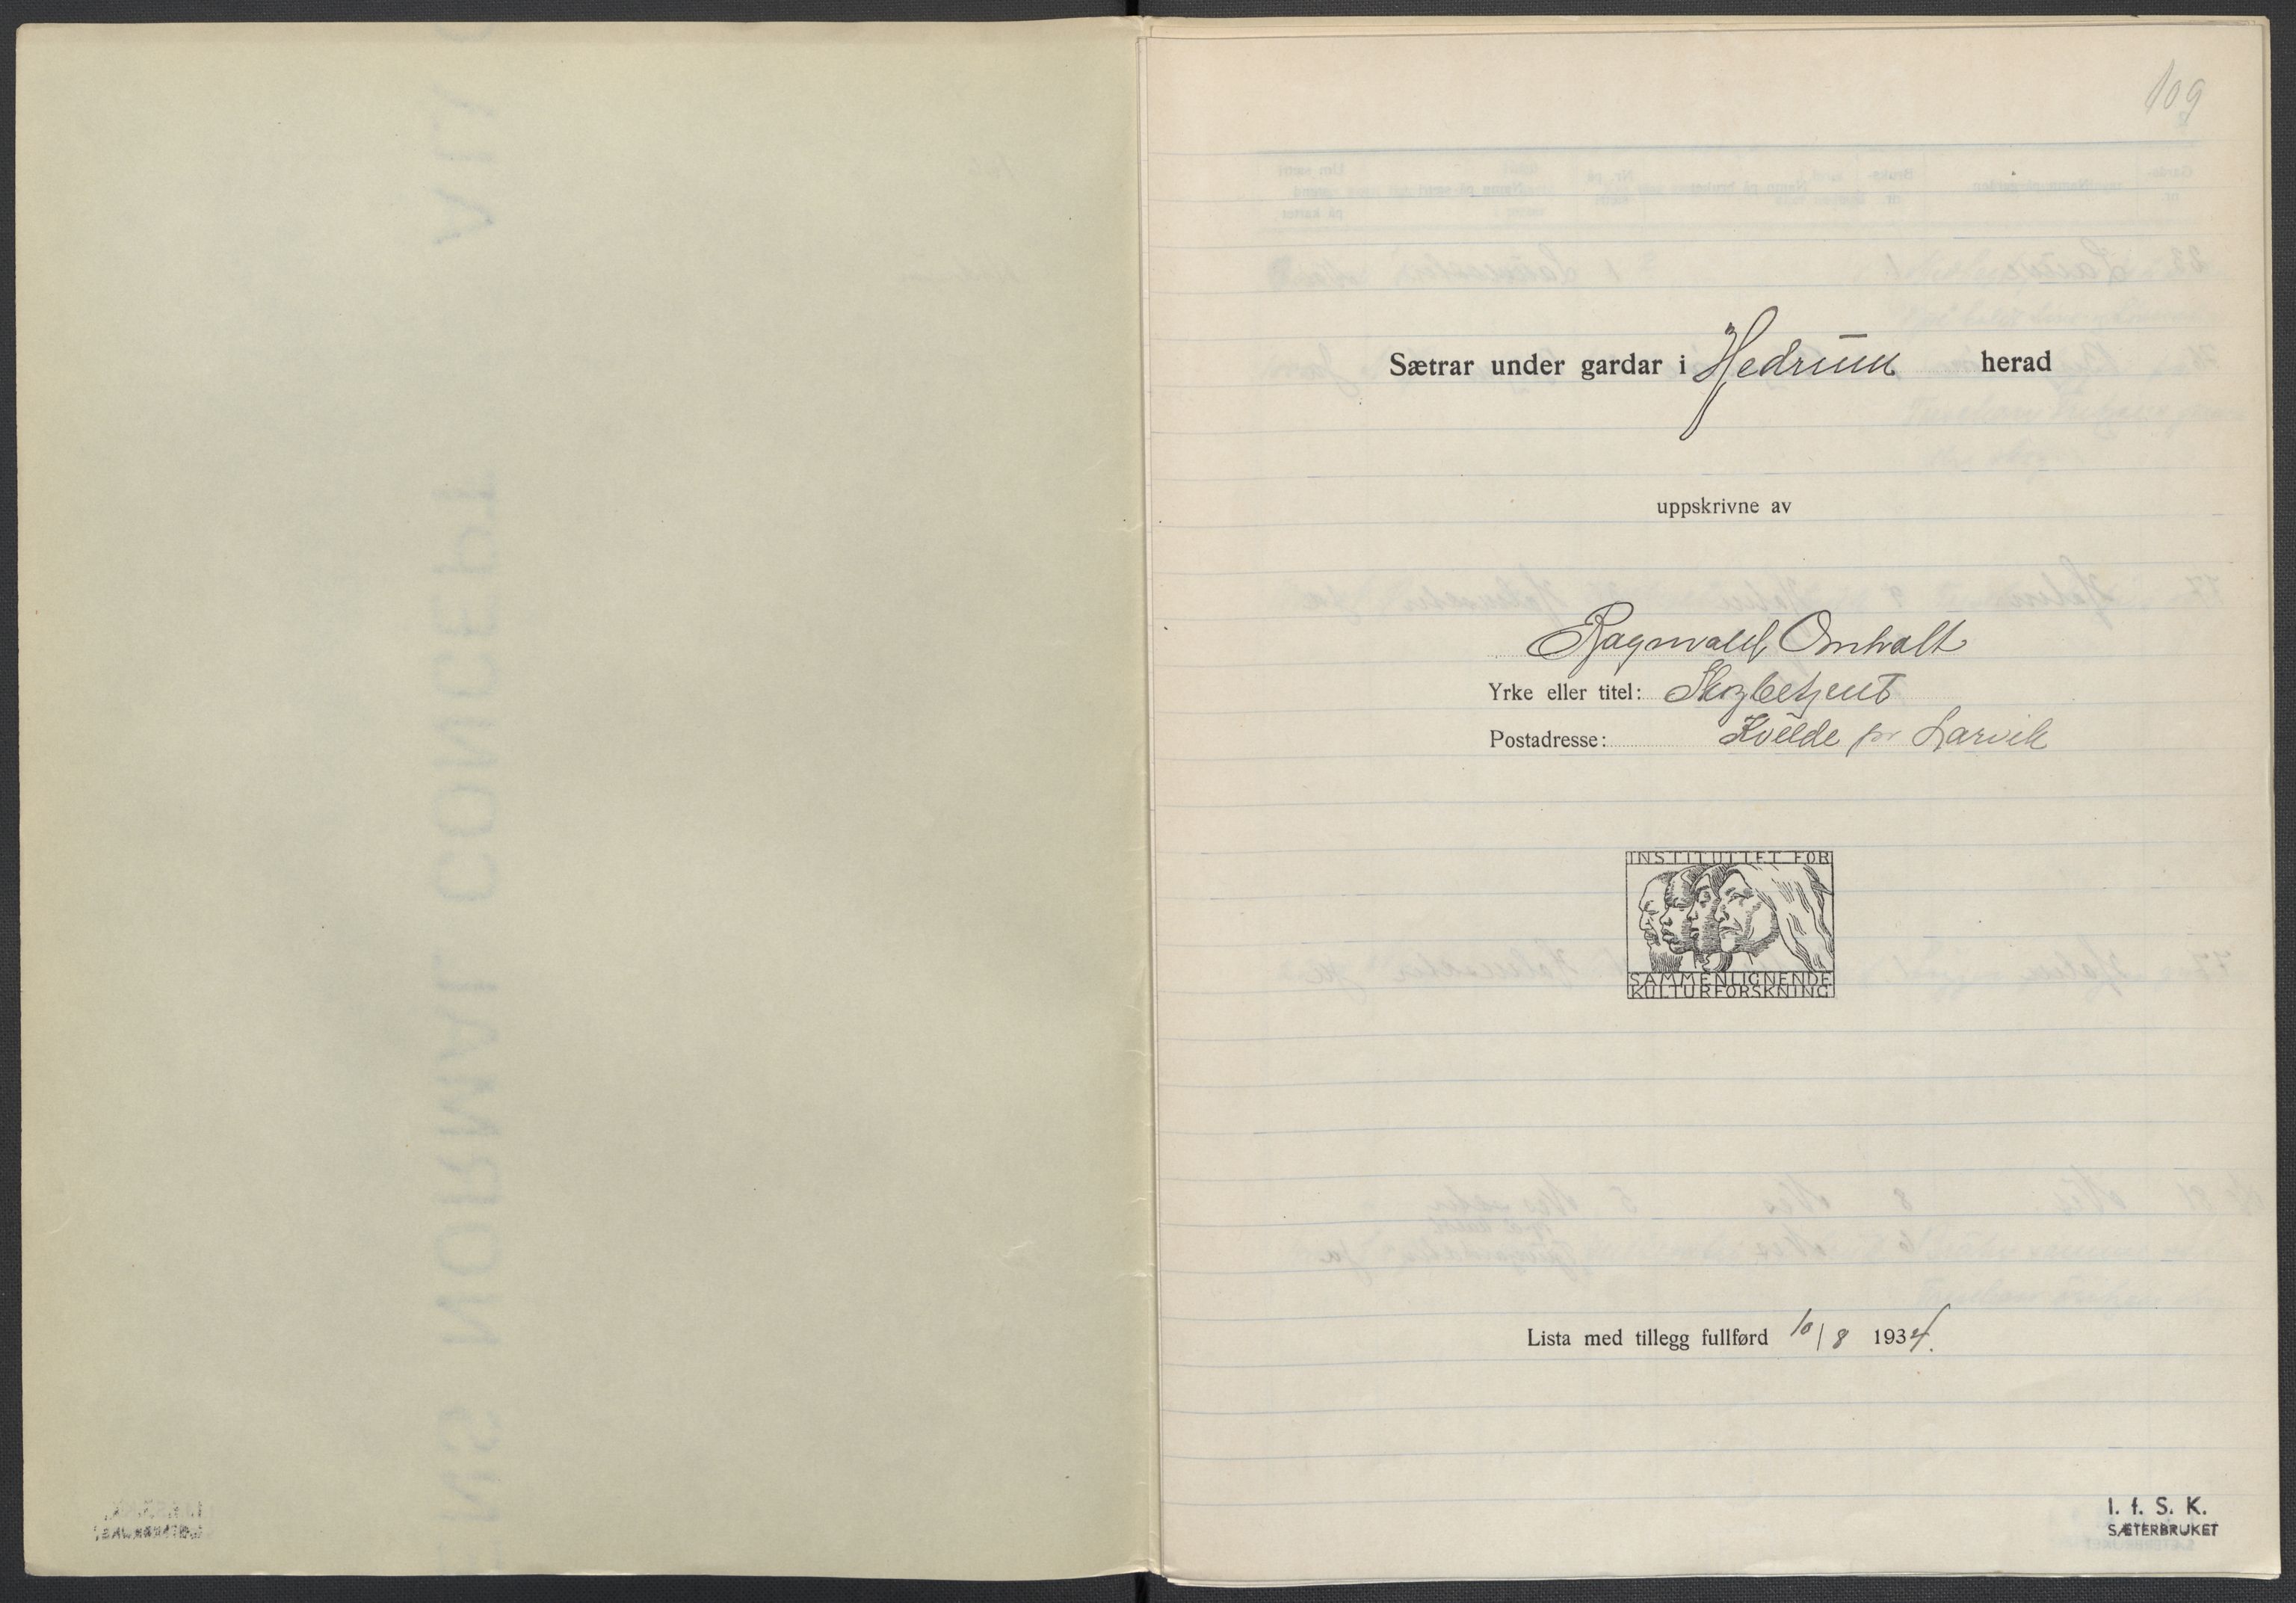 109
Sætrar under gardar i Hedrum herad
uppskrivne av
Ragnvald Omholt
Yrke eller titel: Skogbetjent
Postadresse: Kvelde pr Larvik
INSTITUTTET FOR
SAMMENLIGNENDE
KULTURFORSKNING
Lista med tillegg fullførd 10/8 1934.
I. f. S. K.
SÆTERBRUKET